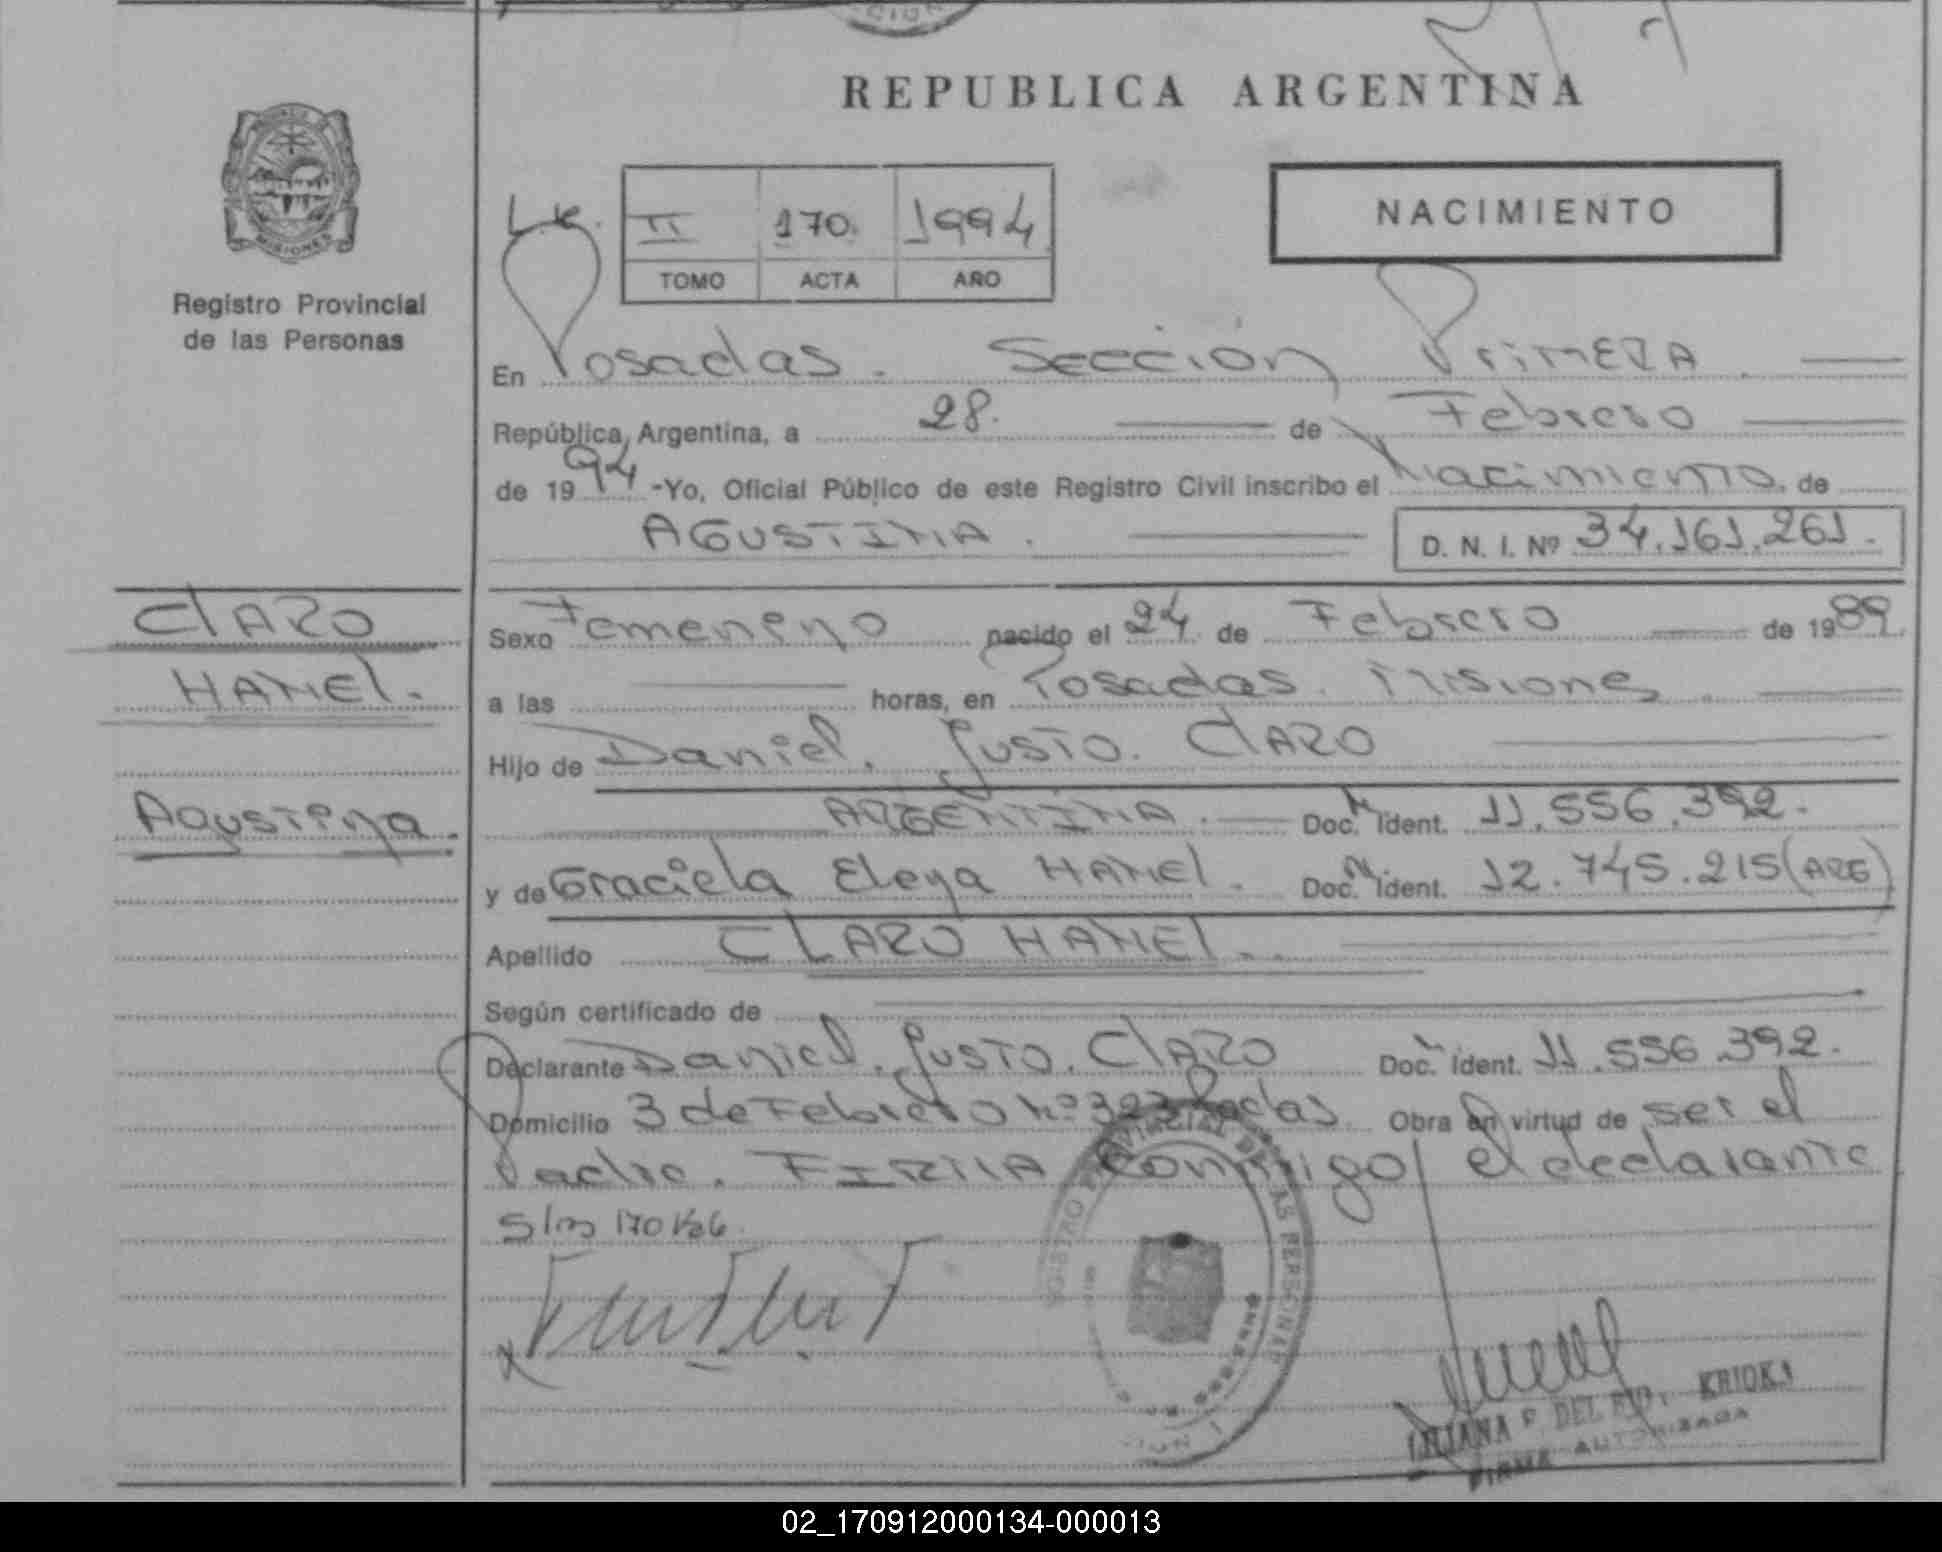 REPUBLICA ARGENTINA
MISIONES
Registro Provincial
de las Personas
II 170. 1994
TOMO ACTA AÑO
NACIMIENTO
En Posadas. Sección Primera.
República Argentina, a 28. de Febrero
de 1994 -Yo, Oficial Público de este Registro Civil inscribo el Nacimiento. de
AGUSTINA. D. N. I. Nº 34.161.261.
CLARO
HANEL.
Agustina.
Sexo Femenino nacido el 24 de Febrero de 1989.
a las horas, en Posadas. Misiones.
Hijo de Daniel. Justo. CLARO
ARGENTINA. Doc. N Ident. 11.556.392.
y de Graciela Elena HANEL. Doc. N Ident. 12.745.215 (ARG)
Apellido CLARO HANEL.
Según certificado de
Declarante Daniel. Justo. CLARO Doc. N ident. 11.556.392.
Domicilio 3 de Febrero Nº Obra en virtud de ser el
Padre. FIRMA conmigo el declarante
REGISTRO PROVINCIAL DE LAS PERSONAS
DEL KRIOKA
FIRMA AUTORIZADA
02_170912000134-000013